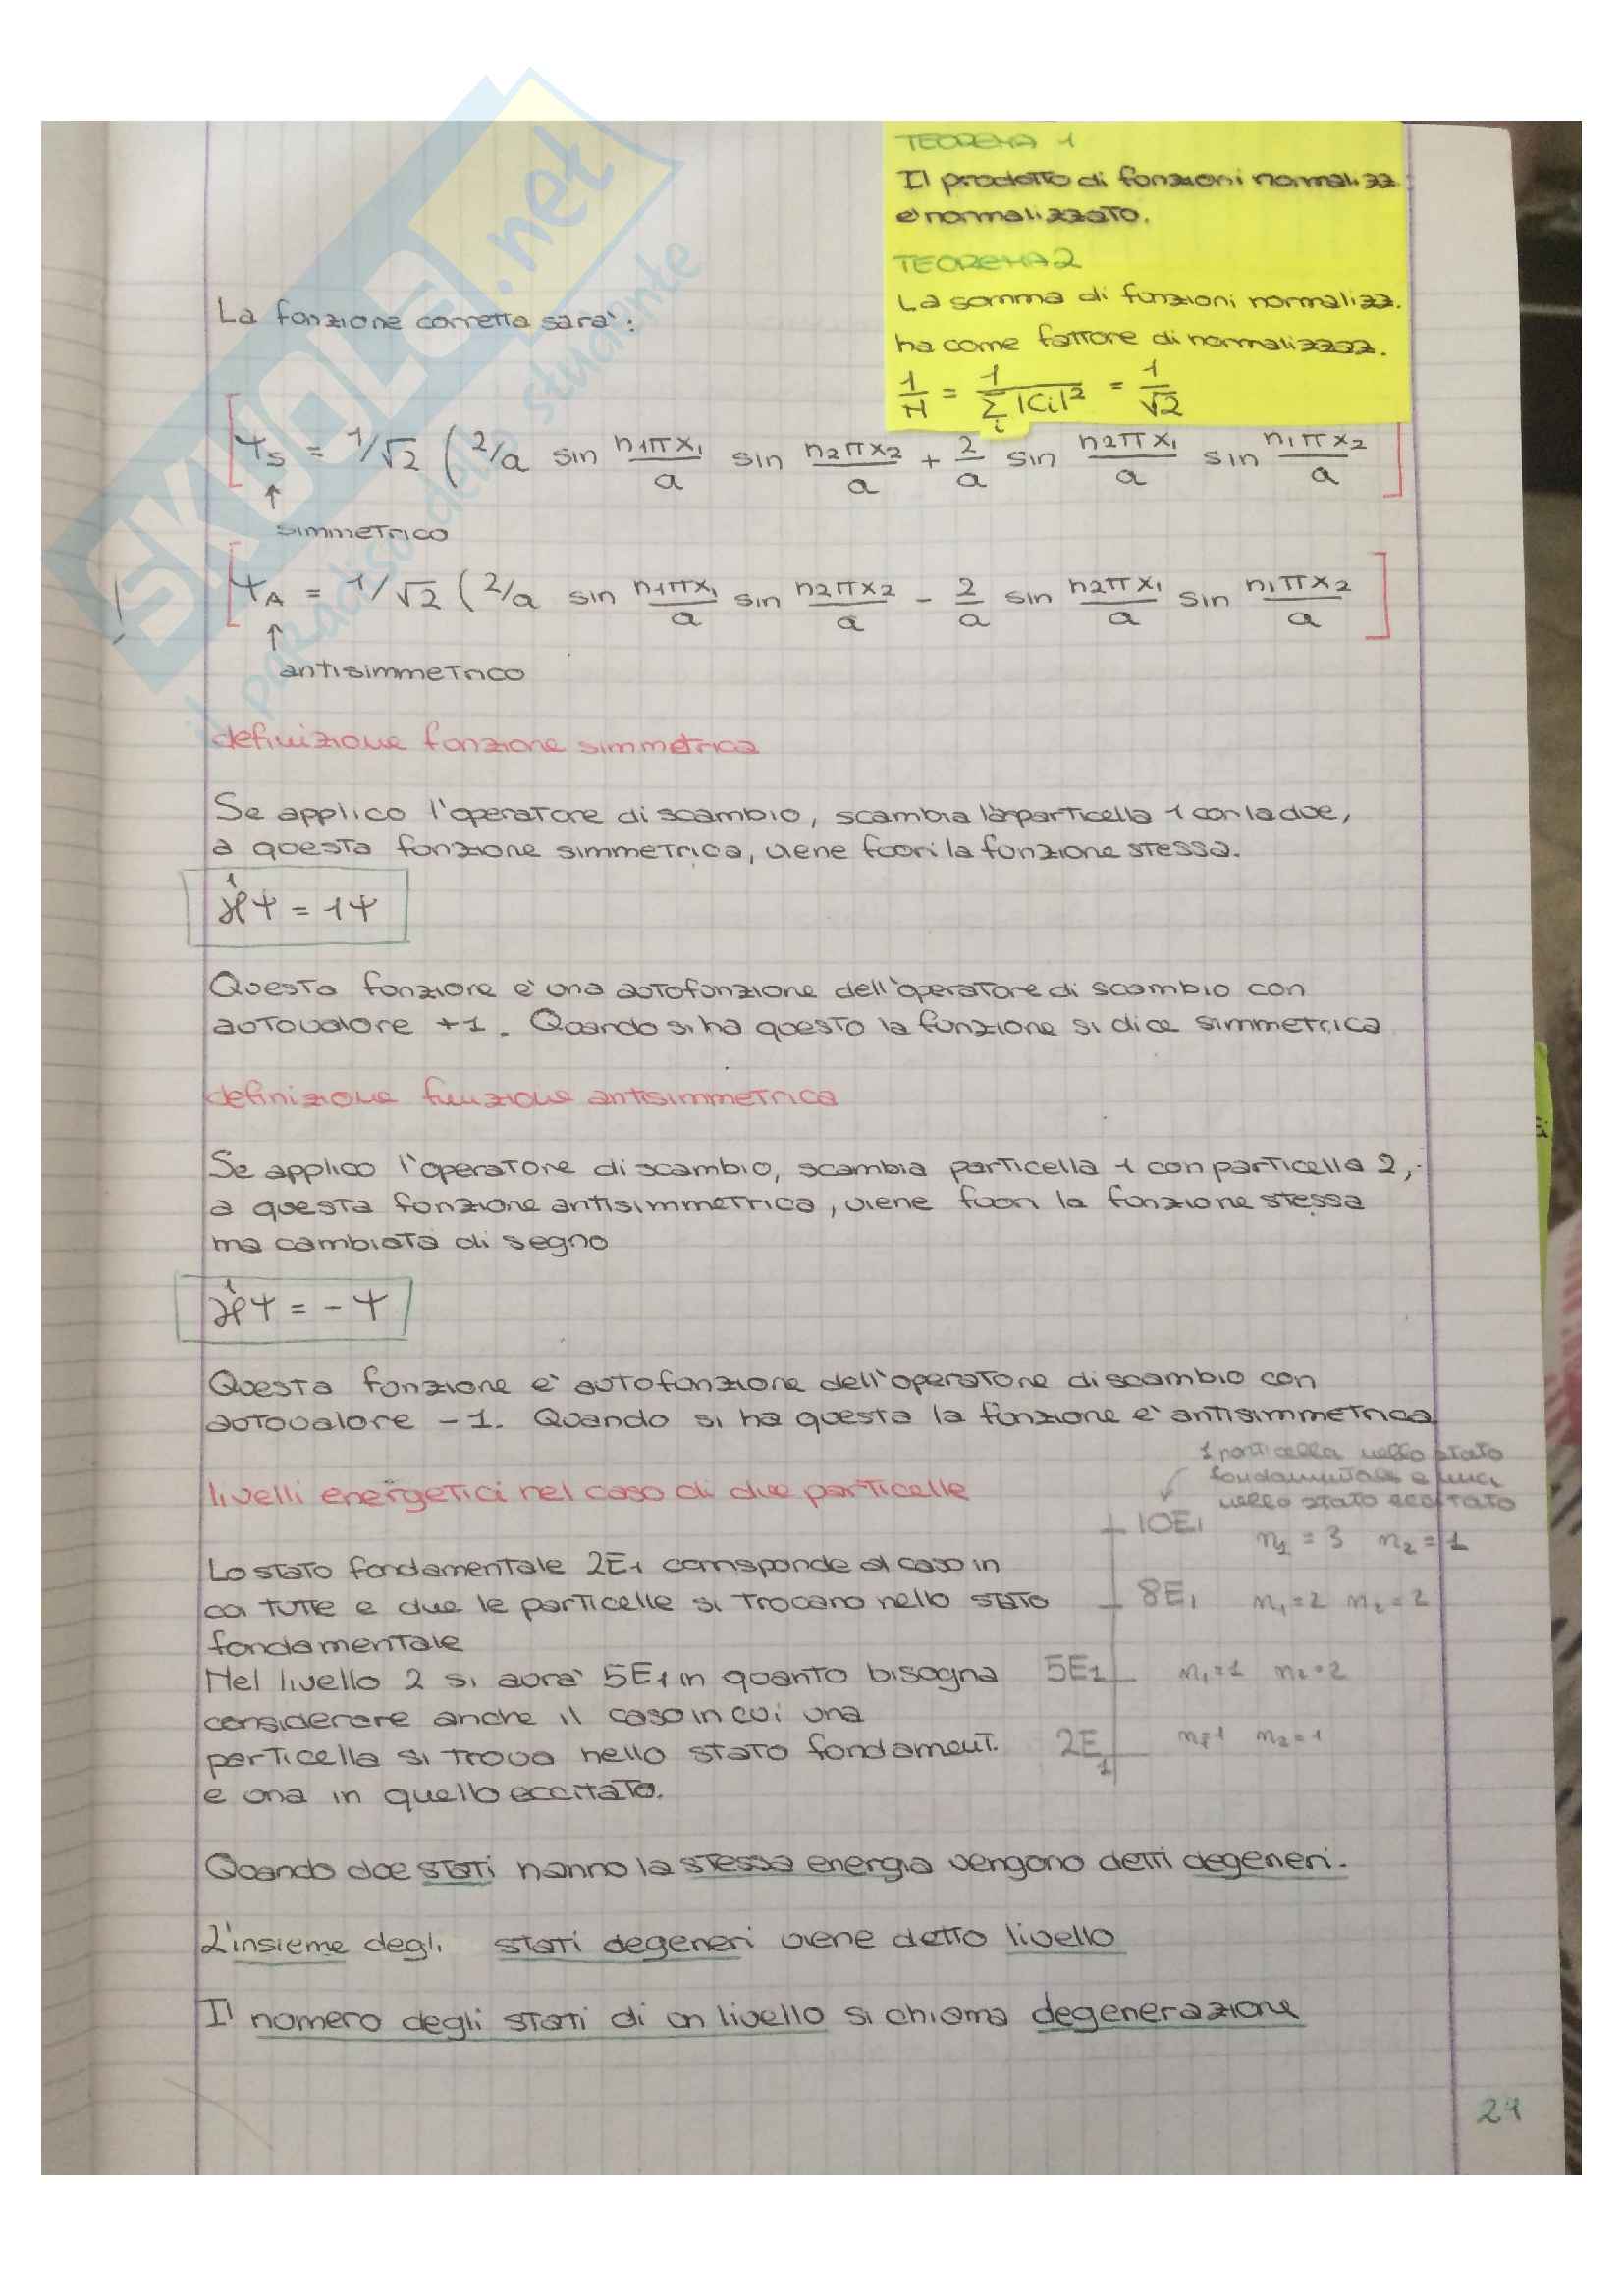 SKUOLA.net
il paradiso dello studente
TEOREMA 1
Il prodotto di funzioni normalizz.
è normalizzato.
TEOREMA 2
La somma di funzioni normalizz.
ha come fattore di normalizzazz.
1/N = 1/Σi |Ci|² = 1/√2
La funzione corretta sarà:
[ψS = 1/√2 (2/a sin n1πx1/a sin n2πx2/a + 2/a sin n2πx1/a sin n1πx2/a ]
↑
simmetrico
! [ψA = 1/√2 (2/a sin n1πx1/a sin n2πx2/a - 2/a sin n2πx1/a sin n1πx2/a ]
↑
antisimmetrico
definizione funzione simmetrica
Se applico l'operatore di scambio, scambia la particella 1 con la due,
a questa funzione simmetrica, viene fuori la funzione stessa.
Ĥψ = 1ψ
Questa funzione è una autofunzione dell'operatore di scambio con
autovalore +1. Quando si ha questo la funzione si dice simmetrica
definizione funzione antisimmetrica
Se applico l'operatore di scambio, scambia particella 1 con particella 2,
a questa funzione antisimmetrica, viene fuori la funzione stessa
ma cambiata di segno
Ĥψ = - ψ
Questa funzione è autofunzione dell'operatore di scambio con
autovalore -1. Quando si ha questa la funzione è antisimmetrica
1 particella nello stato
fondamentale e una
nello stato eccitato
livelli energetici nel caso di due particelle
10E1 n1 = 3 n2 = 1
Lo stato fondamentale 2E1 corrisponde al caso in
cui tutte e due le particelle si trovano nello stato
8E1 n1=2 n2=2
fondamentale
Nel livello 2 si avrà 5E1 in quanto bisogna
5E1 n1=1 n2=2
considerare anche il caso in cui una
particella si trova nello stato fondament.
2E1 n1=1 n2=1
e una in quello eccitato.
Quando due stati hanno la stessa energia vengono detti degeneri.
L'insieme degli stati degeneri viene detto livello
Il numero degli stati di un livello si chiama degenerazione